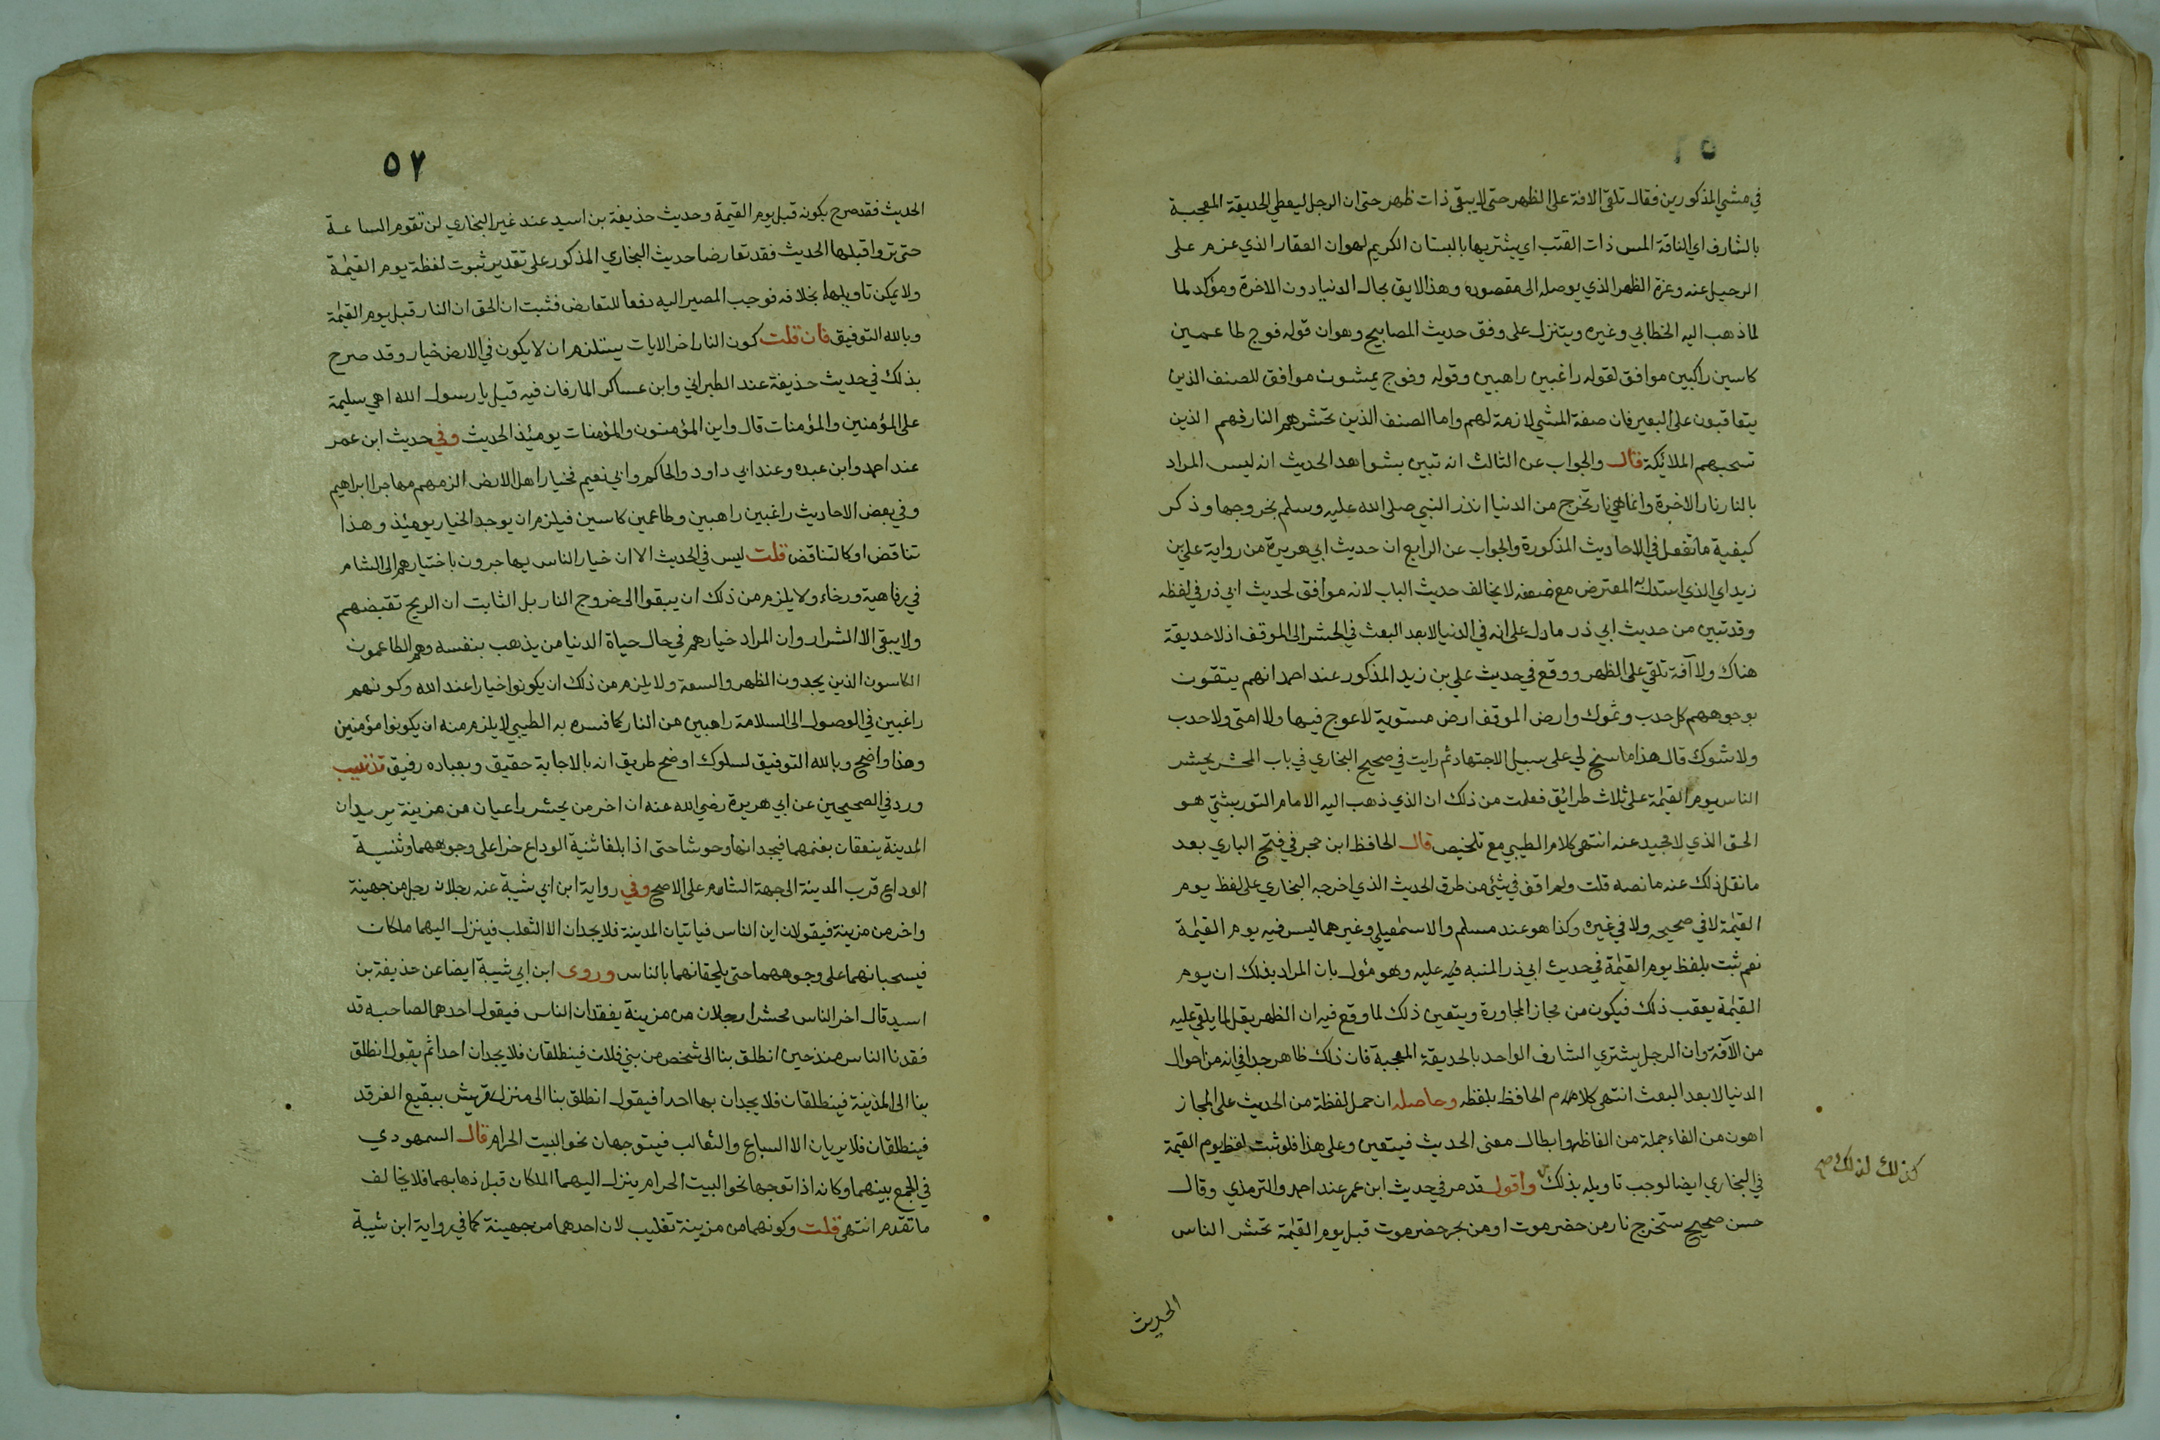 في مشي المذكورين فقال تلقى الافة على الظهر حتى لا يبقى ذات ظهر حتى ان الرجل ليعطي الحديقة المعجبة
بالشارف اي الناقة المسن ذات القتب اي يشتريها بالبستان الكريم لهوان العقار الذي عزم على
الرحيل عنه وعزة الظهر الذي يوصله الى مقصوده وهذا لايق بحال الدنيا دون الاخرة ومؤكد لما
لما ذهب اليه الخطابي وغيره ويتنزل على وفق حديث المصابيح وهو ان قوله فوج طاعمين
كاسين راكبين موافق لقوله راغبين راهبين وقوله وفوج يمشون موافق للصنف الذين
يتعاقبون على البعير فان صفة المشي لازمة لهم واما الصنف الذين تحشرهم النار فهم الذين
تسحبهم الملائكة قال والجواب عن الثالث انه تبين بشواهد الحديث انه ليس المراد
بالنار نار الاخرة وانما هي نار تخرج من الدنيا انذر النبي صلى الله عليه وسلم بخروجها وذكر
كيفية ما تفعل في الاحاديث المذكورة والجواب عن الرابع ان حديث ابي هريرة من رواية علي بن
زيد اي الذي استدل به المعترض مع ضعفه لا يخالف حديث الباب لانه موافق لحديث ابي ذر في لفظه
وقد تبين من حديث ابي ذر ما دل على انه في الدنيا لا بعد البعث في الحشر الى الموقف اذ لا حديقة
هناك ولا آفة تلقى على الظهر ووقع في حديث علي بن زيد المذكور عند احمد انهم يتقون
بوجوههم كل حدب وشوك وارض الموقف ارض مستوية لا عوج فيها ولا امتى ولا حدب
ولا شوك قال هذا ما سنح لي على سبيل الاجتهاد ثم رايت في صحيح البخاري في باب المحشر يحشر
الناس يوم القيمة على ثلاث طرائق فعلمت من ذلك ان الذي ذهب اليه الامام التوربشتي هو
الحق الذي لا محيد عنه انتهى كلام الطيبي مع تلخيص قال الحافظ ابن حجر في فتح الباري بعد
ما نقل ذلك عنه ما نصه قلت ولم اقف في شئ من طرق الحديث الذي اخرجه البخاري على لفظ يوم
القيمة لا في صحيحه ولا في غيره وكذا هو عند مسلم والاسمعيلي وغيرهما ليس فيه يوم القيمة
نعم ثبت بلفظ يوم القيمة في حديث ابي ذر المنبه عليه وهو مؤول بان المراد بذلك ان يوم
القيمة يعقب ذلك فيكون من مجاز المجاورة ويتعين ذلك لما وقع فيه ان الظهر يقل لما يلقى عليه
من الآفة وان الرجل يشتري الشارف الواحد بالحديقة المعجبة فان ذلك ظاهر جدا في انه من احوال
الدنيا لا بعد البعث انتهى كلام الحافظ بلفظه وحاصله ان حمل لفظة من الحديث على المجاز
اهون من الغاء جملة من الفاظه وابطال معنى الحديث فيتعين وعلى هذا فلو ثبت لفظ يوم القيمة
في البخاري ايضا لوجب تاويله بذلك واقول قد مر في حديث ابن عمر عند احمد والترمذي وقال
حسن صحيح ستخرج نار من حضرموت او من بحر حضرموت قبل يوم القيمة تحشر الناس
كذلك لذلك صح
الحديث
٥٧
الحديث فقد صرح بكونه قبل يوم القيمة وحديث حذيفة بن اسيد عند غير البخاري لن تقوم الساعة
حتى تروا قبلها الحديث فقد تعارضا حديث البخاري المذكور على تقدير ثبوت لفظة يوم القيمة
ولا يمكن تاويلها بخلافه فوجب المصير اليه دفعا للتعارض فثبت ان الحق ان النار قبل يوم القيمة
وبالله التوفيق فان قلت كون النار اخر الايات يستلزم ان لا يكون في الارض خيار وقد صرح
بذلك في حديث حذيفة عند الطبراني وابن عساكر المار فان فيه قيل يا رسول الله اهي سليمة
على المؤمنين والمؤمنات قال واين المؤمنون والمؤمنات يومئذ الحديث وفي حديث ابن عمر
عند احمد وابن عبده وعند ابي داود والحاكم وابي نعيم فخيار اهل الارض الزمهم مهاجر ابراهيم
وفي بعض الاحاديث راغبين راهبين وطاعمين كاسين فيلزم ان يوجد الخيار يومئذ وهذا
تناقض او كالتناقض قلت ليس في الحديث الا ان خيار الناس يهاجرون باختيارهم الى الشام
في رفاهية ورخاء ولا يلزم من ذلك ان يبقوا الى خروج النار بل الثابت ان الريح تقبضهم
ولا يبقى الا الشرار وان المراد خيارهم في حال حياة الدنيا من يذهب بنفسه وهم الطاعمون
الكاسون الذين يجدون الظهر والسعة ولا يلزم من ذلك ان يكونوا خيارا عند الله وكونهم
راغبين في الوصول الى السلامة راهبين من النار كما فسره به الطيبي لا يلزم منه ان يكونوا مؤمنين
وهذا واضح وبالله التوفيق لسلوك اوضح طريق انه بالاجابة حقيق وبعباده رفيق تذنيب
ورد في الصحيحين عن ابي هريرة رضي الله عنه ان اخر من يحشر راعيان من مزينة يريدان
المدينة ينعقان بغنمهما فيجدانها وحوشا حتى اذا بلغا ثنية الوداع خرا على وجوههما وثنية
الوداع قرب المدينة الى جهة الشام على الاصح وفي رواية ابن ابي شيبة عنه رجلان رجل من جهينة
واخر من مزينة فيقولان اين الناس فياتيان المدينة فلا يجدان الا الثعلب فينزل اليهما ملكان
فيسحبانهما على وجوههما حتى يلحقانهما بالناس وروى ابن ابي شيبة ايضا عن حذيفة بن
اسيد قال اخر الناس محشرا رجلان من مزينة يفقدان الناس فيقول احدهما لصاحبه قد
فقدنا الناس منذ حين انطلق بنا الى شخص من بني فلان فينطلقان فلا يجدان احدا ثم يقول انطلق
بنا الى المدينة فينطلقان فلا يجدان بها احدا فيقول انطلق بنا الى منزل قريش ببقيع الغرقد
فينطلقان فلا يريان الا السباع والثعالب فيتوجهان نحو البيت الحرام قال السمهودي
في الجمع بينهما وكانه اذا توجها نحو البيت الحرام ينزل اليهما الملكان قبل ذهابهما فلا يخالف
ما تقدم انتهى قلت وكونهما من مزينة تغليب لان احدهما من جهينة كما في رواية ابن شيبة